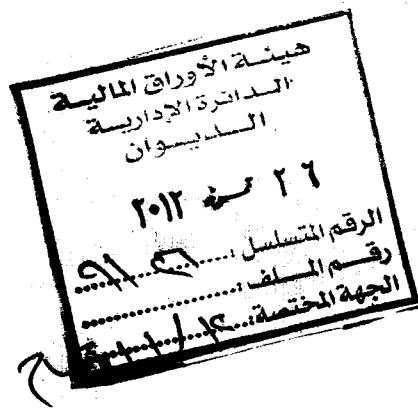 هيئة الأوراق المالية
الدائرة الإدارية
الديوان
٢٦ تموز ٢٠١٢
الرقم المتسلسل :
رقم الملف :
الجهة المختصة :